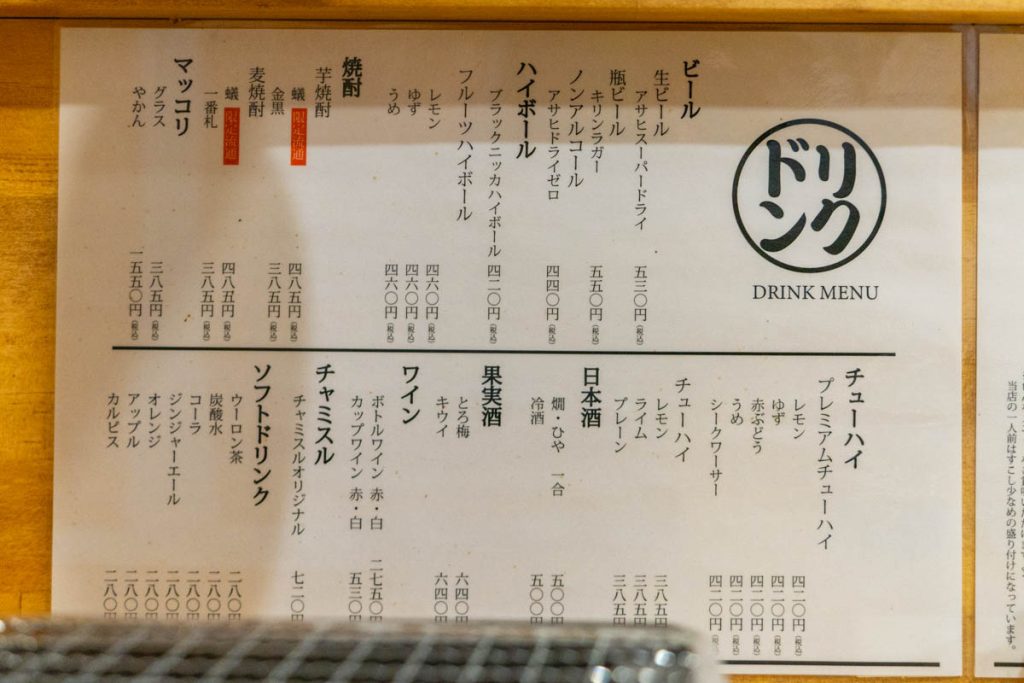 ドリンク
DRINK MENU
ビール
生ビール
アサヒスーパードライ 五三〇円(税込)
瓶ビール
キリンラガー 五五〇円(税込)
ノンアルコール
アサヒドライゼロ 四四〇円(税込)
ハイボール
ブラックニッカハイボール 四二〇円(税込)
フルーツハイボール
レモン 四六〇円(税込)
ゆず 四六〇円(税込)
うめ 四六〇円(税込)
焼酎
芋焼酎
蟻 限定流通 四八五円(税込)
金黒 三八五円(税込)
麦焼酎
蟻 限定流通 四八五円(税込)
一番札 三八五円(税込)
マッコリ
グラス 三八五円(税込)
やかん 一五五〇円(税込)
チューハイ
プレミアムチューハイ
レモン 四二〇円(税込)
ゆず 四二〇円(税込)
赤ぶどう 四二〇円(税込)
うめ 四二〇円(税込)
シークワーサー 四二〇円(税込)
チューハイ
レモン 三八五円
ライム 三八五円
プレーン 三八五円
日本酒
燗・ひや 一合 五〇〇円
冷酒 五〇〇円
果実酒
とろ梅 六四〇円
キウイ 六四〇円
ワイン
ボトルワイン 赤・白 二七五〇円
カップワイン 赤・白 五三〇円
チャミスル
チャミスルオリジナル 七二〇円
ソフトドリンク
ウーロン茶 二八〇円
炭酸水 二八〇円
コーラ 二八〇円
ジンジャーエール 二八〇円
オレンジ 二八〇円
アップル 二八〇円
カルピス 二八〇円
当店の一人前はすこし少なめの盛り付けになっています。